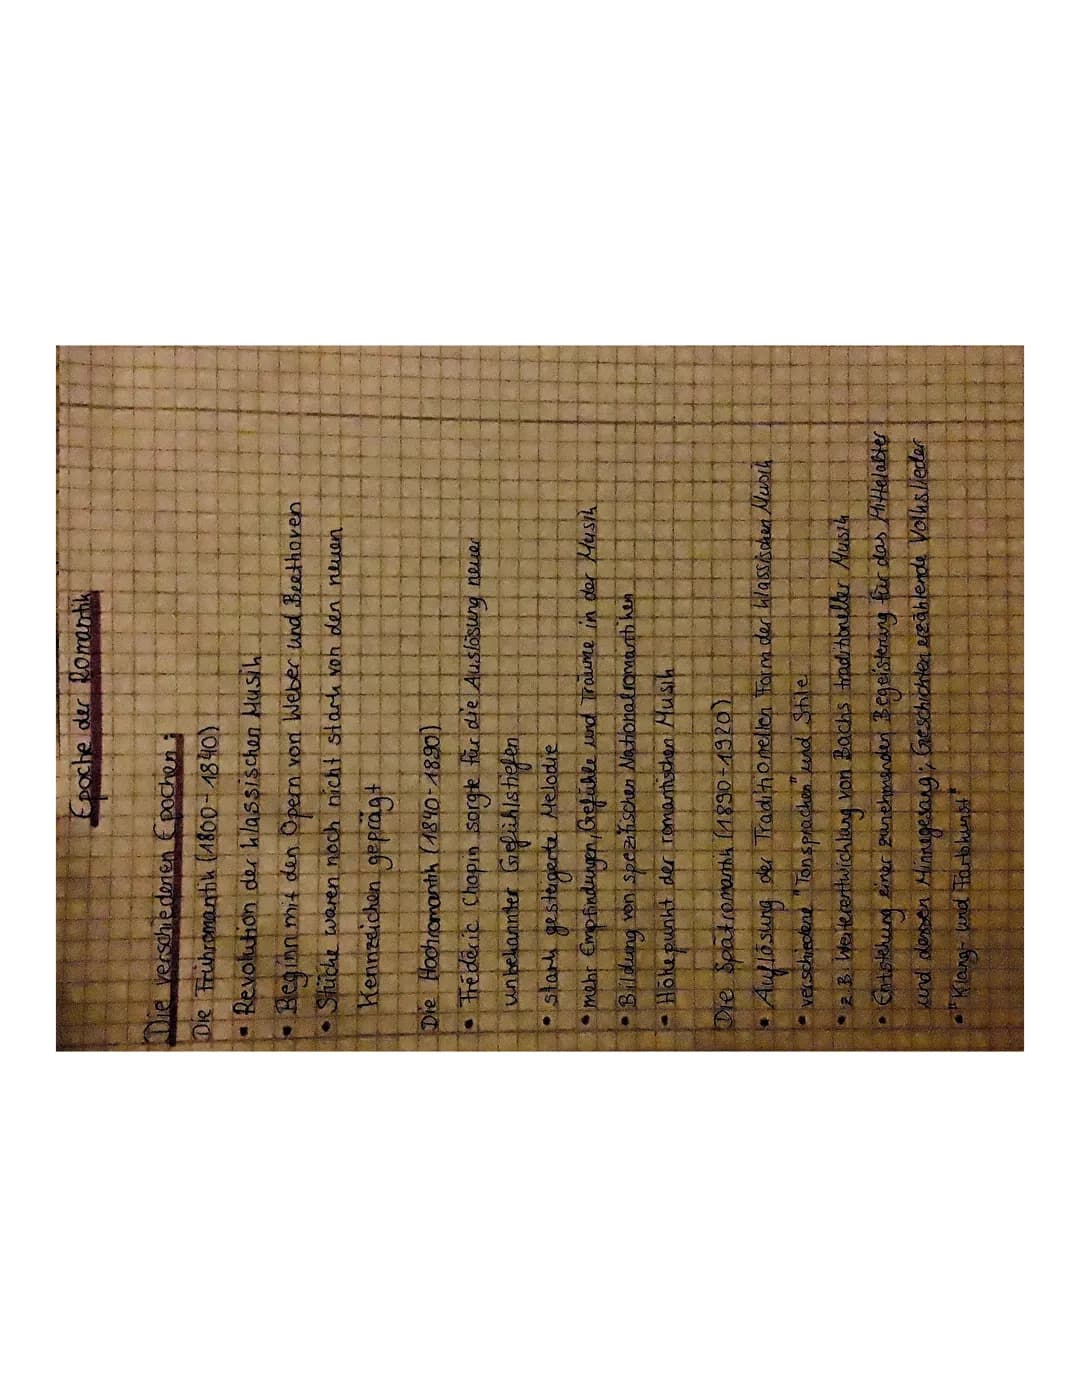 Epoche der Romantik
Die verschiedenen Epochen:
Die Frühromantik (1800-1840)
• Revolution der klassischen Musik
• Beginn mit den Opern von Weber und Beethoven
• Stücke waren noch nicht stark von den neuen
Kennzeichen geprägt
Die Hochromantik (1840-1890)
• Frédéric Chopin sorgte für die Auslösung neuer
unbekannter Gefühlstiefen
• stark gesteigerte Melodie
• mehr Empfindungen, Gefühle und Träume in der Musik
• Bildung von spezifischen Nationalromantiken
• Höhepunkt der romantischen Musik
Die Spätromantik (1890-1920)
• Auflösung der Traditionellen Form der klassischen Musik
• verschiedene "Tonsprachen" und Stile
• z.B. Weiterentwicklung von Bachs traditioneller Musik
• Entstehung einer zunehmenden Begeisterung für das Mittelalter
und dessen Minnegesang; Geschichten erzählende Volkslieder
• "Klang- und Farbkunst"